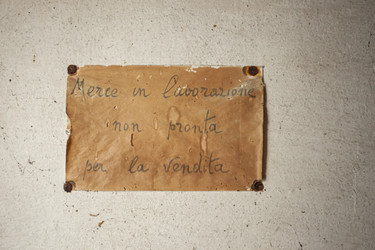 Merce in lavorazione
non pronta
per la vendita